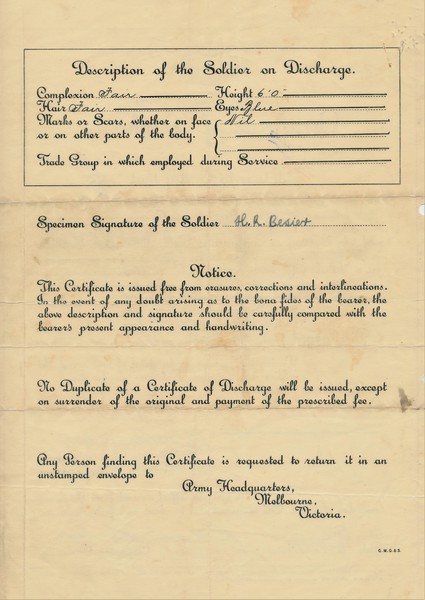 Description of the Soldier on Discharge.
Complexion Fair Height 6' 0"
Hair Fair Eyes Blue
Marks or Scars, whether on face Nil
or on other parts of the body.
Trade Group in which employed during Service
Specimen Signature of the Soldier H. R. Besier
Notice.
This Certificate is issued free from erasures, corrections and interlineations.
In the event of any doubt arising as to the bona fides of the bearer, the
above description and signature should be carefully compared with the
bearer's present appearance and handwriting.
No Duplicate of a Certificate of Discharge will be issued, except
on surrender of the original and payment of the prescribed fee.
Any Person finding this Certificate is requested to return it in an
unstamped envelope to
Army Headquarters,
Melbourne,
Victoria.